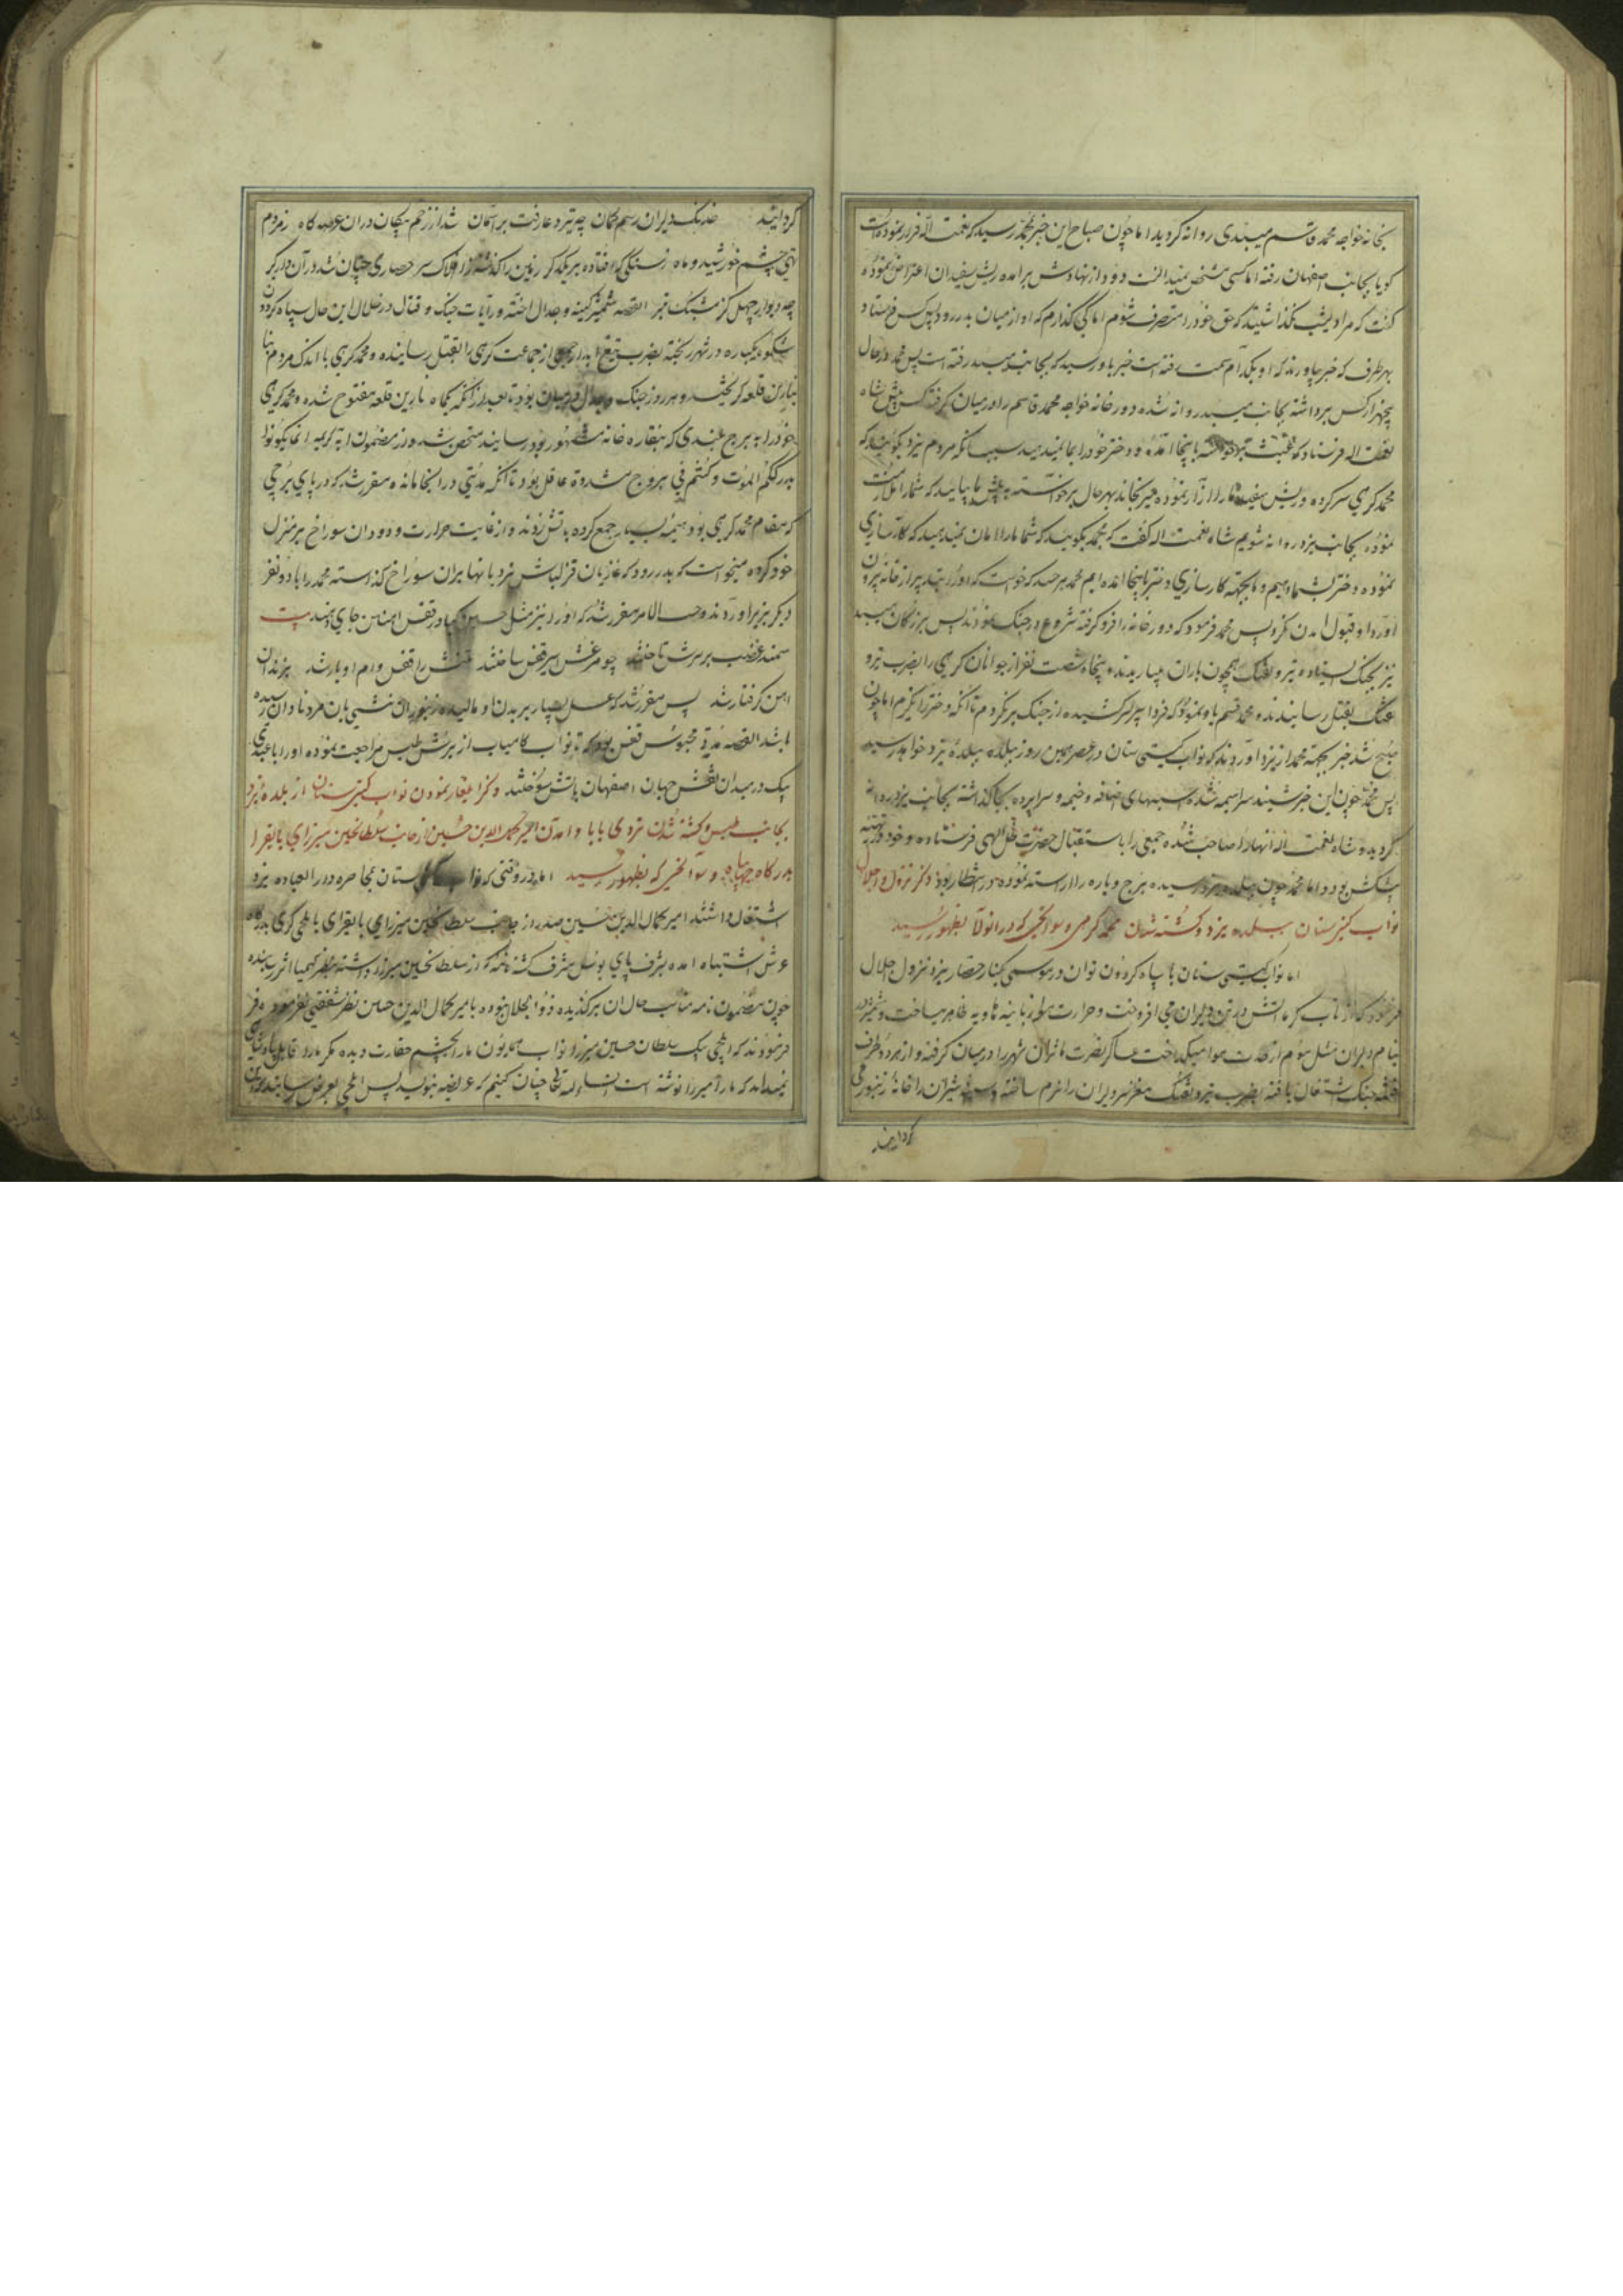 بخانه خواجه محمد قاسم میبدی روانه کردید اما چون صباح این خبر بمحمد رسید که نعمت اله فرار نموده است
کویا بجانب اصفهان رفته اما کسی مشخص نمیدانست دود از نهادش برامده ریش سفیدان اعتراض نموده
کفت که مرا دیشب نکذاشتید که حق خود را متصرف شوم اما کی کذارم که او از میان بدر رود پس کس فرستاد
بهر طرف که خبر بیاورند که او بکدام سمت رفته است خبر باو رسید که بجانب میبد رفته است پس محمد در حال
کس برداشته بجانب میبد روانه شده دور خانه خواجه محمد قاسم را در میان کرفته کس پیش شاه
نعمت اله فرستاد که باینجا آمده و دختر خود را بما نمیدهید مردم یزد بکویند که
محمد کرهی سر کرده و ریش سفید ما را آزار نموده بهر حال برخواسته پیش ما بیایید که شما را
نموده بجانب یزد روانه شویم شاه نعمت اله کفت که بمحمد بکویید که شما ما را امان نمیدهید که کارسازی
نموده دختر بشما دهیم و ما بجهته کارسازی دختر باینجا آمده ایم محمد هر چند که خواست که او را از خانه بیرون
آورد او قبول امدن نکرد پس محمد فرمود که دور خانه را فرو کرفته شروع در جنک نمودند پس بزرکان میبد
نیز بجنک ایستاده تیر و تفنک همچون باران میباریدند و پنجاه شصت نفر از جوانان کرهی را بضرب تیر و
تفنک بقتل رسانیدند و محمد قسم یاد نمود که فردا سپر بر سر کشیده از جنک بر نکردم تا آنکه دختر را نکیرم اما چون
صبح شد خبر بجهته محمد از یزد آوردند که نواب کیتی ستان در همین روز ببلده یزد خواهد رسید
پس محمد چون این خبر شنید سراسیمه شده اسبهای اضافه و خیمه و سراپرده بجا کذاشته بجانب یزد روانه
کردید و شاه نعمت اله آنها را صاحب شده جمعی را باستقبال حضرت ظل الهی فرستاده و خود در تهیه
پیشکش بود و اما محمد چون ببلده یزد رسیده برج و باره را آراسته نموده در انتظار بود ذکر نزول اجلال
نواب کیتی ستان ببلده یزد و کشته شدن محمد کرهی و سوانحی که در انولا بظهور رسید
اما نواب کیتی ستان با سپاه کردون توان در موسمی بکنار حصار یزد نزول اجلال
فرمود که از تاب کرما آتش در تن دلیران می افروخت و حرارت هوا زبانیه هاویه ظاهر میساخت و شمشیر در
نیام دلیران مثل موم از حدت هوا میکداخت عساکر نصرت ماثران شهر را در میان کرفته و از هر دو طرف
بجنک اشتغال یافته بضرب تیر و تفنک مغز سر دلیران را نرم ساخته و سینه شیران را خانه زنبور
کردانید
کردانیدند خدنک دلیران رستم کمان چه تیر دعا رفت بر آسمان شد از زخم پیکان دران عرصه کاه
چشم خورشید و ماه ز سنکی که افتاده بر یکدکر زمین را کذشته ز افلاک سر حصاری چنان شد در آن داربکر
چه دیوار چهل کز مشبک
یکباره در شهر ریخته بضرب تیغ آبدار جمعی از جماعت کرهی را بقتل رسانیده و محمد کرهی با اندک مردم
بنارین قلعه کریختند و هر روز جنک و جدال در میان بود تا بعد از آنکه یکماه نارین قلعه مفتوح شده و محمد کرهی
خود را به برج بلندی که بنقاره خانه مشهور بود رسانید متحصن شده و از مضمون ایه کریمه اینما تکونوا
یدرککم الموت و لو کنتم فی بروج مشیدة غافل بود تا آنکه مدتی در آنجا مانده مقرر شد که در پای برجی
که مقام محمد کرهی بود هیمه بسیار جمع کرده باتش زدند و از غایت حرارت و دود ان سوراخ بر منزل
خود کرده میخواست که بدر رود که غازیان قزلباش نردبانها بران سوراخ کذاشته محمد را با دو نفر
دیکر بزیر اوردند و حسب الامر مقرر شد که او را نیز مثل حسین کیا در قفس اهنین جای دهند بیت
سمند غضب بر سرش تاختند چو مرغش اسیر قفس ساختند تنش را قفس دام او یار شد بزندان
اهن کرفتار شد پس مقرر شد که عسل بسیار بر بدن او مالیده زنبوران
باشد القصه مدتی محبوس قفس بود که تا نواب کامیاب از یورش طبس مراجعت نموده او را با
بیک در میدان نقش جهان اصفهان باتش سوختند ذکر ایلغار نمودن نواب کیتی ستان از بلده یزد
بجانب طبس و کشته شدن تردی بابا و امدن امیر کمال الدین حسین از جانب سلطانحسین میرزای بایقرا
بدرکاه جهانپناه و سوانحی که بظهور رسید اما در وقتی که نواب کیتی ستان بمحاصره دار العباده یزد
اشتغال داشتند امیر کمال الدین حسین صدر از جانب سلطانحسین میرزای بایقرای بایلچی کری بدرکاه
عرش اشتباه امده بشرف پای بوس مشرف کشته نامه که از سلطانحسین میرزا داشته بنظر کیمیا اثر رسانیده
چون مضمون نامه مناسب حال ان برکزیده ذو الجلال نبوده بامیر کمال الدین حسین نظر شفقتی نفرموده
فرمودند که ایلچی بیک سلطان حسین میرزا نواب همایون ما را بچشم حقارت دیده مکر ما را قابل پادشاهی
نمیداند که ما را میرزا نوشته است انشاء اله تعالی چنان کنیم که عریضه بنویسد پس ایلچی بعرض رسانید